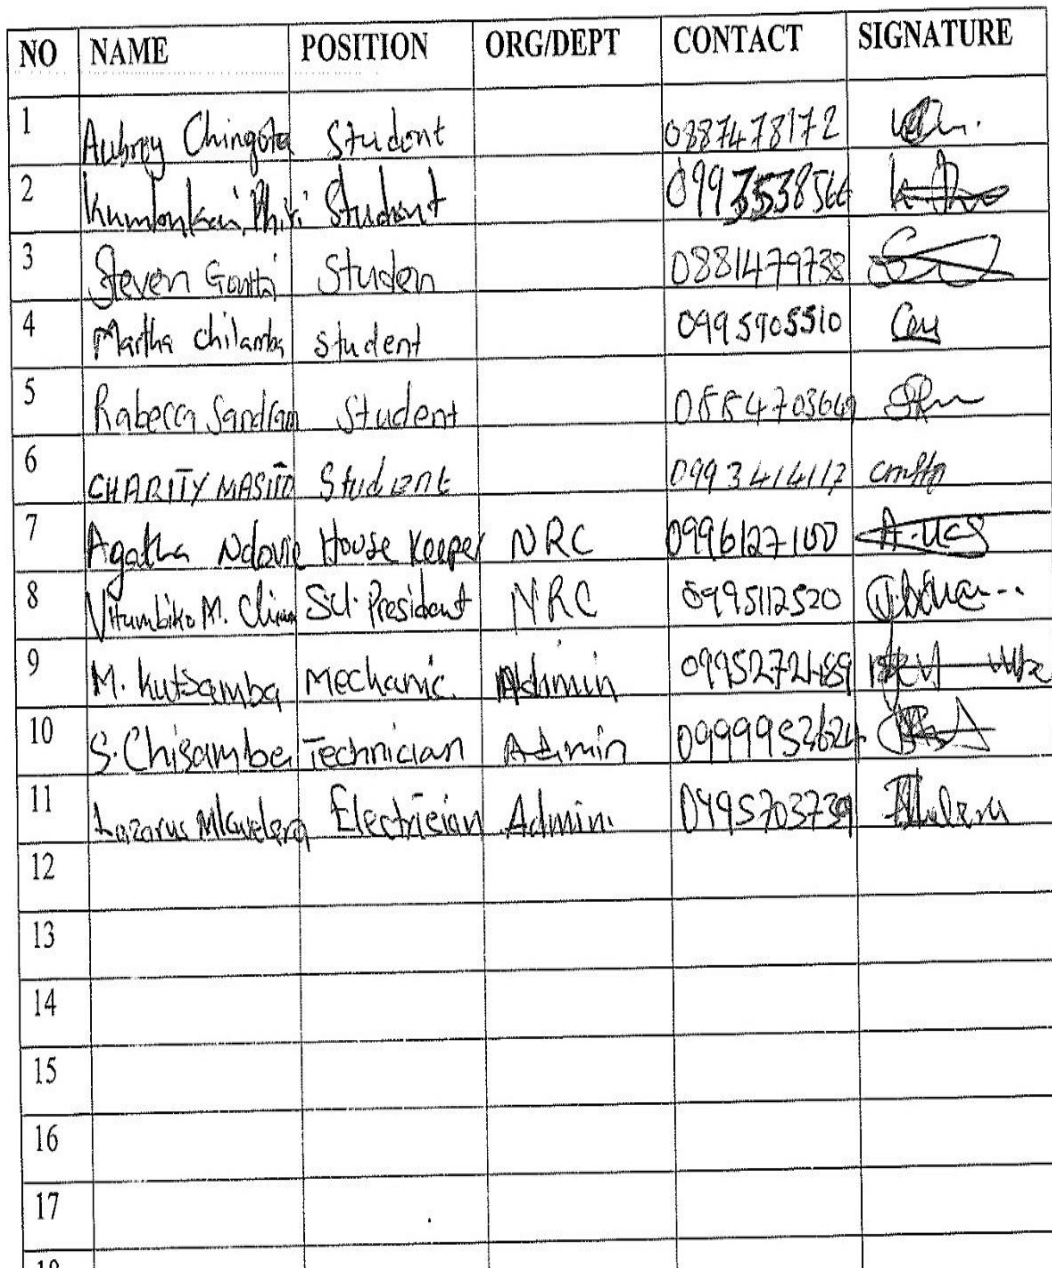 NO NAME POSITION ORG/DEPT CONTACT SIGNATURE
1 Aubrey Chingota Student 0887478172
2 Kumbukani Phiri Student 0993538566
3 Steven Studen 0881479738
4 Martha Chilamba student 0995905510
5 Rabecca Student 0884703649
6 CHARITY Student 0993414112
7 Agatha Ndovie House Keeper NRC 0996127100
8 Vitumbiko M. S.U. President NRC 0995112520
9 M. Kutsamba Mechanic. Admin
10 S. Chisambe Technician Admin
11 Lazarus Electrician Admin. 0995703739
12
13
14
15
16
17
18